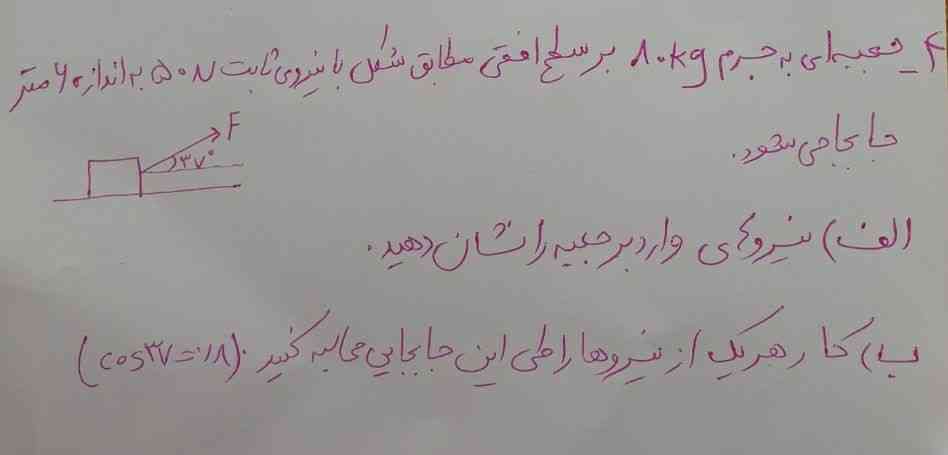 ۴_ جعبه‌ای به جرم ۸۰kg بر سطح افقی مطابق شکل با نیروی ثابت ۵۰N به اندازه ۶ متر
جا بجا می شود.
F
۳۷°
الف) نیروهای وارد بر جعبه را نشان دهید.
ب) کار هر یک از نیروها را طی این جابجایی محاسبه کنید. (cos۳۷=۰/۸)